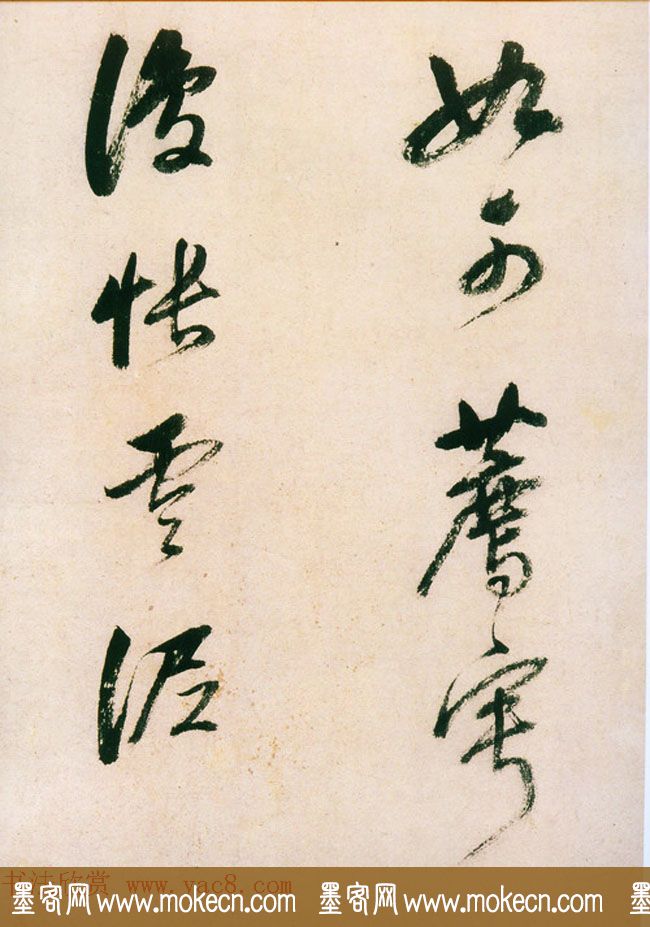 如可薦寧
復悵雲泥
书法欣赏 www.yac8.com
墨客网 www.mokecn.com 墨客网 www.mokecn.com